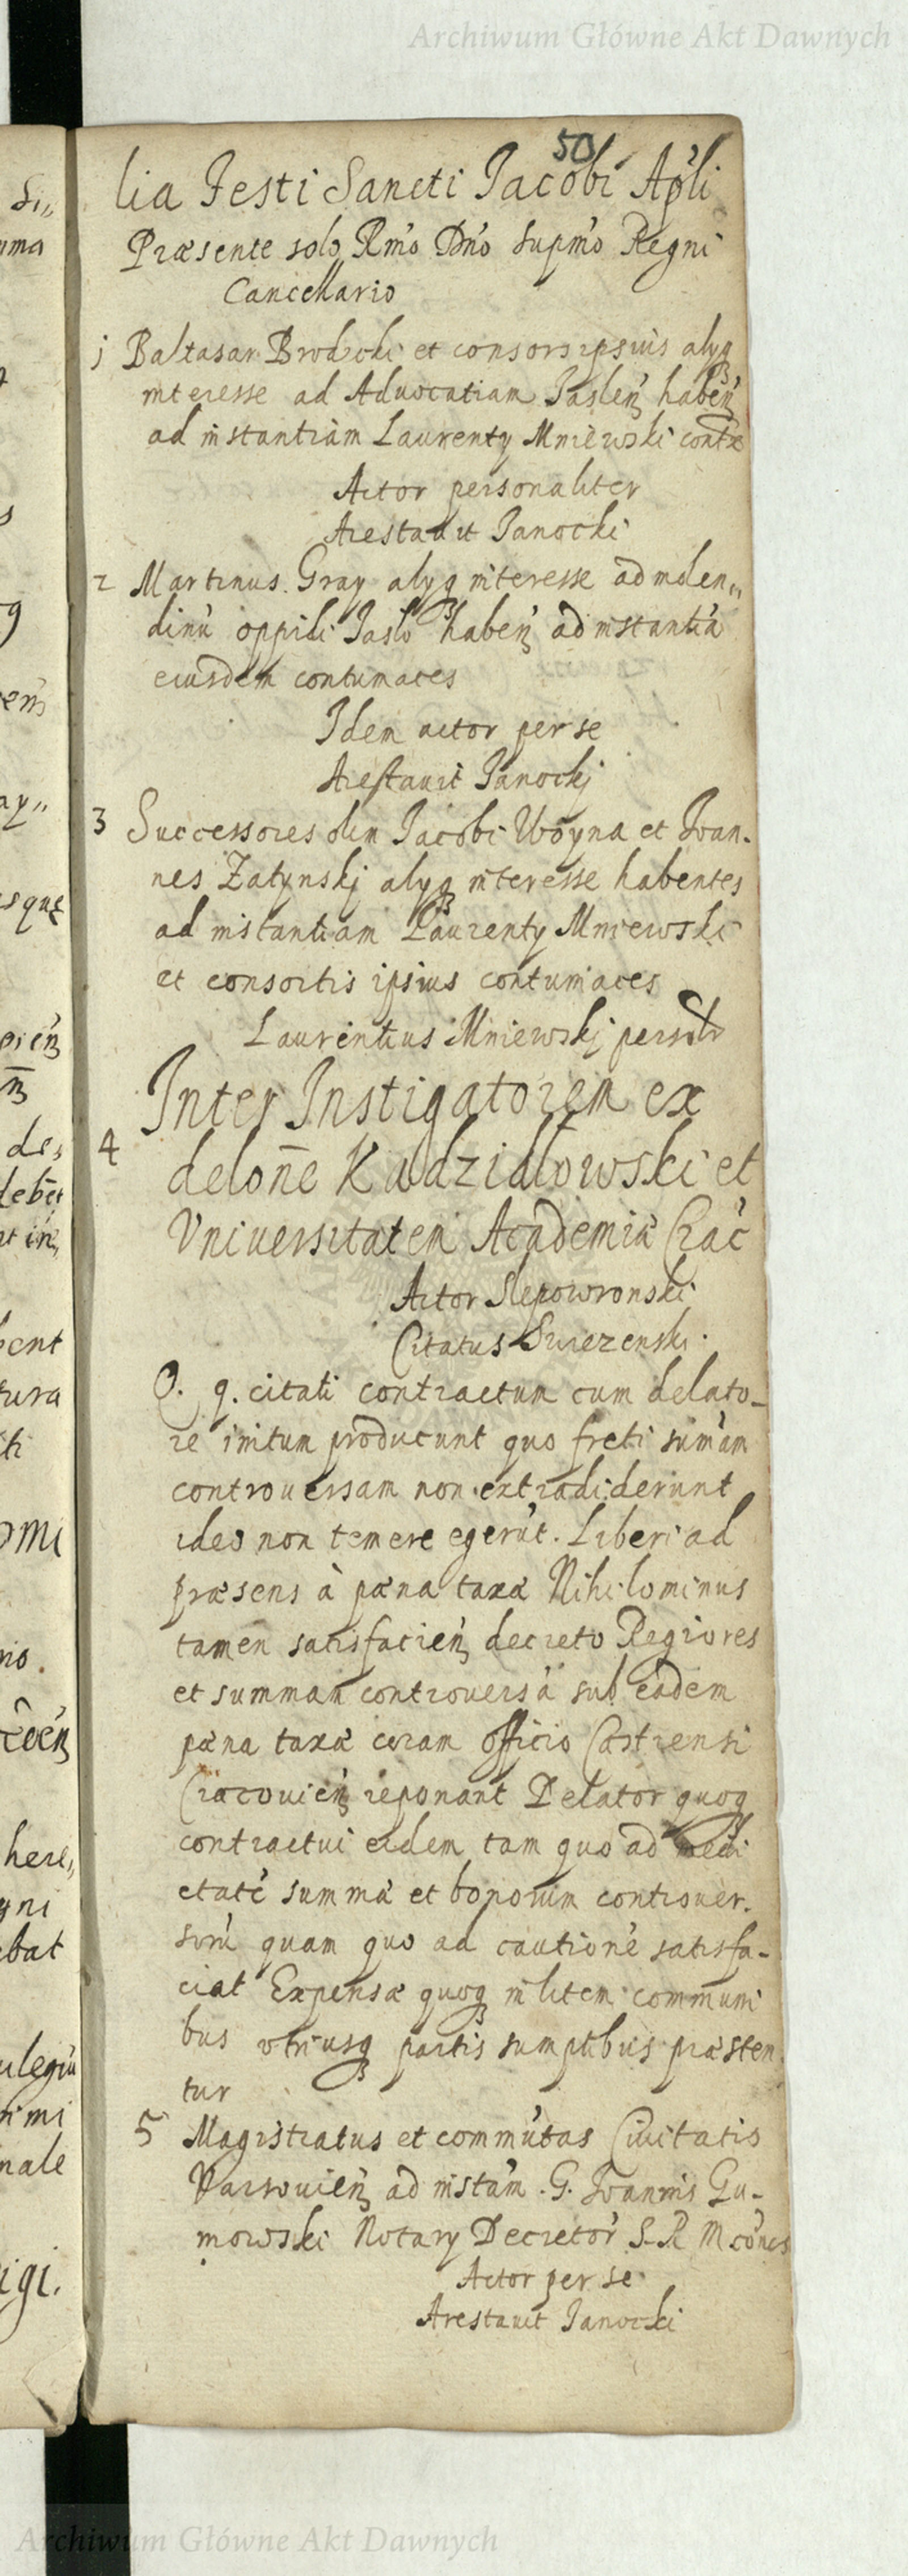 Archiwum Główne Akt Dawnych
50
lia Festi Sancti Jacobi Apli
Præsente solo Rmo Dno supmo Regni
Cancellario
1 Baltasar Brodzcki et consors ipsius alyq
interesse ad Aduocatiam Jaslen haben
ad instantiam Laurenty Mniewski contes
Actor personaliter
Arestauit Janocki
2 Martinus Gray alyq interesse ad molen„
dinu oppidi Jaslo haben ad instantia
eiusdem contumaces
Idem actor per se
Arestauit Janockj
3 Successores olim Jacobi Woyna et Joan-
nes Zatynskj alyq interesse habentes
ad instantiam Laurenty Mniewski
et consortis ipsius contumaces
Laurentius Mniewskj personalr
4 Inter Instigatorem ex
delone Kadzidlowski et
Vniuersitatem Academiæ Crac
Actor Slepowronski
Citatus Swiezenski.
O. q. citati contractum cum delato-
re initum producunt quo freti sumam
controuersam non extradiderunt
ideo non temere egerut. Liberi ad
præsens à pæna taxæ Nihilominus
tamen satisfacien decreto Regio res
et summam controuersa sub eadem
pæna taxæ coram officio Castrensi
Cracouien reponant Delator quoq
contractui eidem tam quo ad medi
etate summæ et bonorum controuer.
soru quam quo ad cautione satisfa-
ciat Expensæ quoq in litem communi
bus vtriusq partis sumptibus præsten
tur
5 Magistratus et commutas Ciuitatis
Varsouien ad instam. G. Joannis Gu-
mowski Notary Decretor S. R M cones
Actor per se
Arestauit Janocki
Archiwum Główne Akt Dawnych